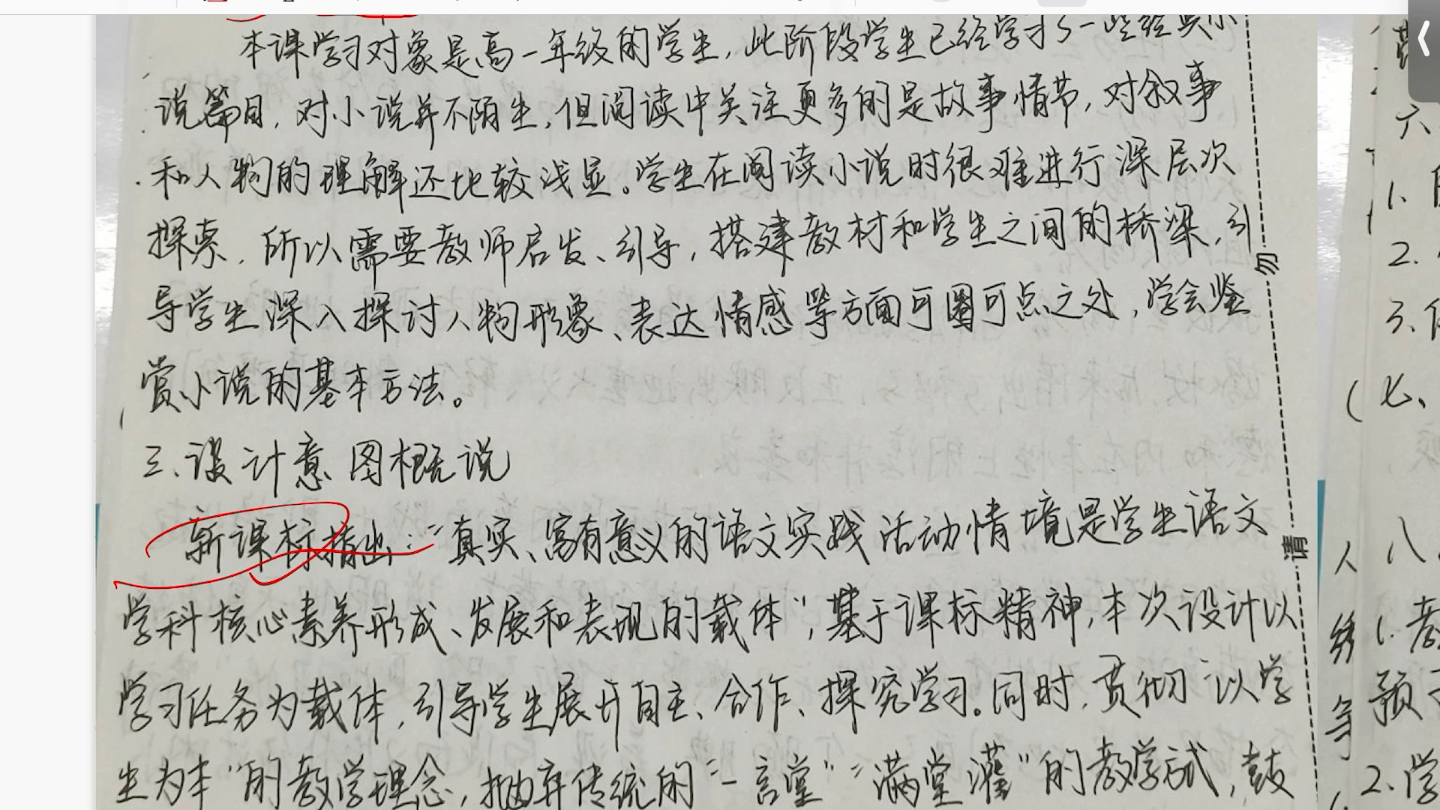 本课学习对象是高一年级的学生，此阶段学生已经学习了一些经典小
说篇目，对小说并不陌生，但阅读中关注更多的是故事情节，对叙事
和人物的理解还比较浅显。学生在阅读小说时很难进行深层次
探索，所以需要教师启发、引导，搭建教材和学生之间的桥梁，引
导学生深入探讨人物形象、表达情感等方面可圈可点之处，学会鉴
赏小说的基本方法。
三、设计意图概说
新课标指出："真实、富有意义的语文实践活动情境是学生语文
学科核心素养形成、发展和表现的载体"，基于课标精神，本次设计以
学习任务为载体，引导学生展开自主、合作、探究学习。同时，贯彻"以学
生为本"的教学理念，抛弃传统的"一言堂""满堂灌"的教学式，鼓
勿
请
六
1.
2.
3.
七、
八、
1.教
预
2.学
人
等